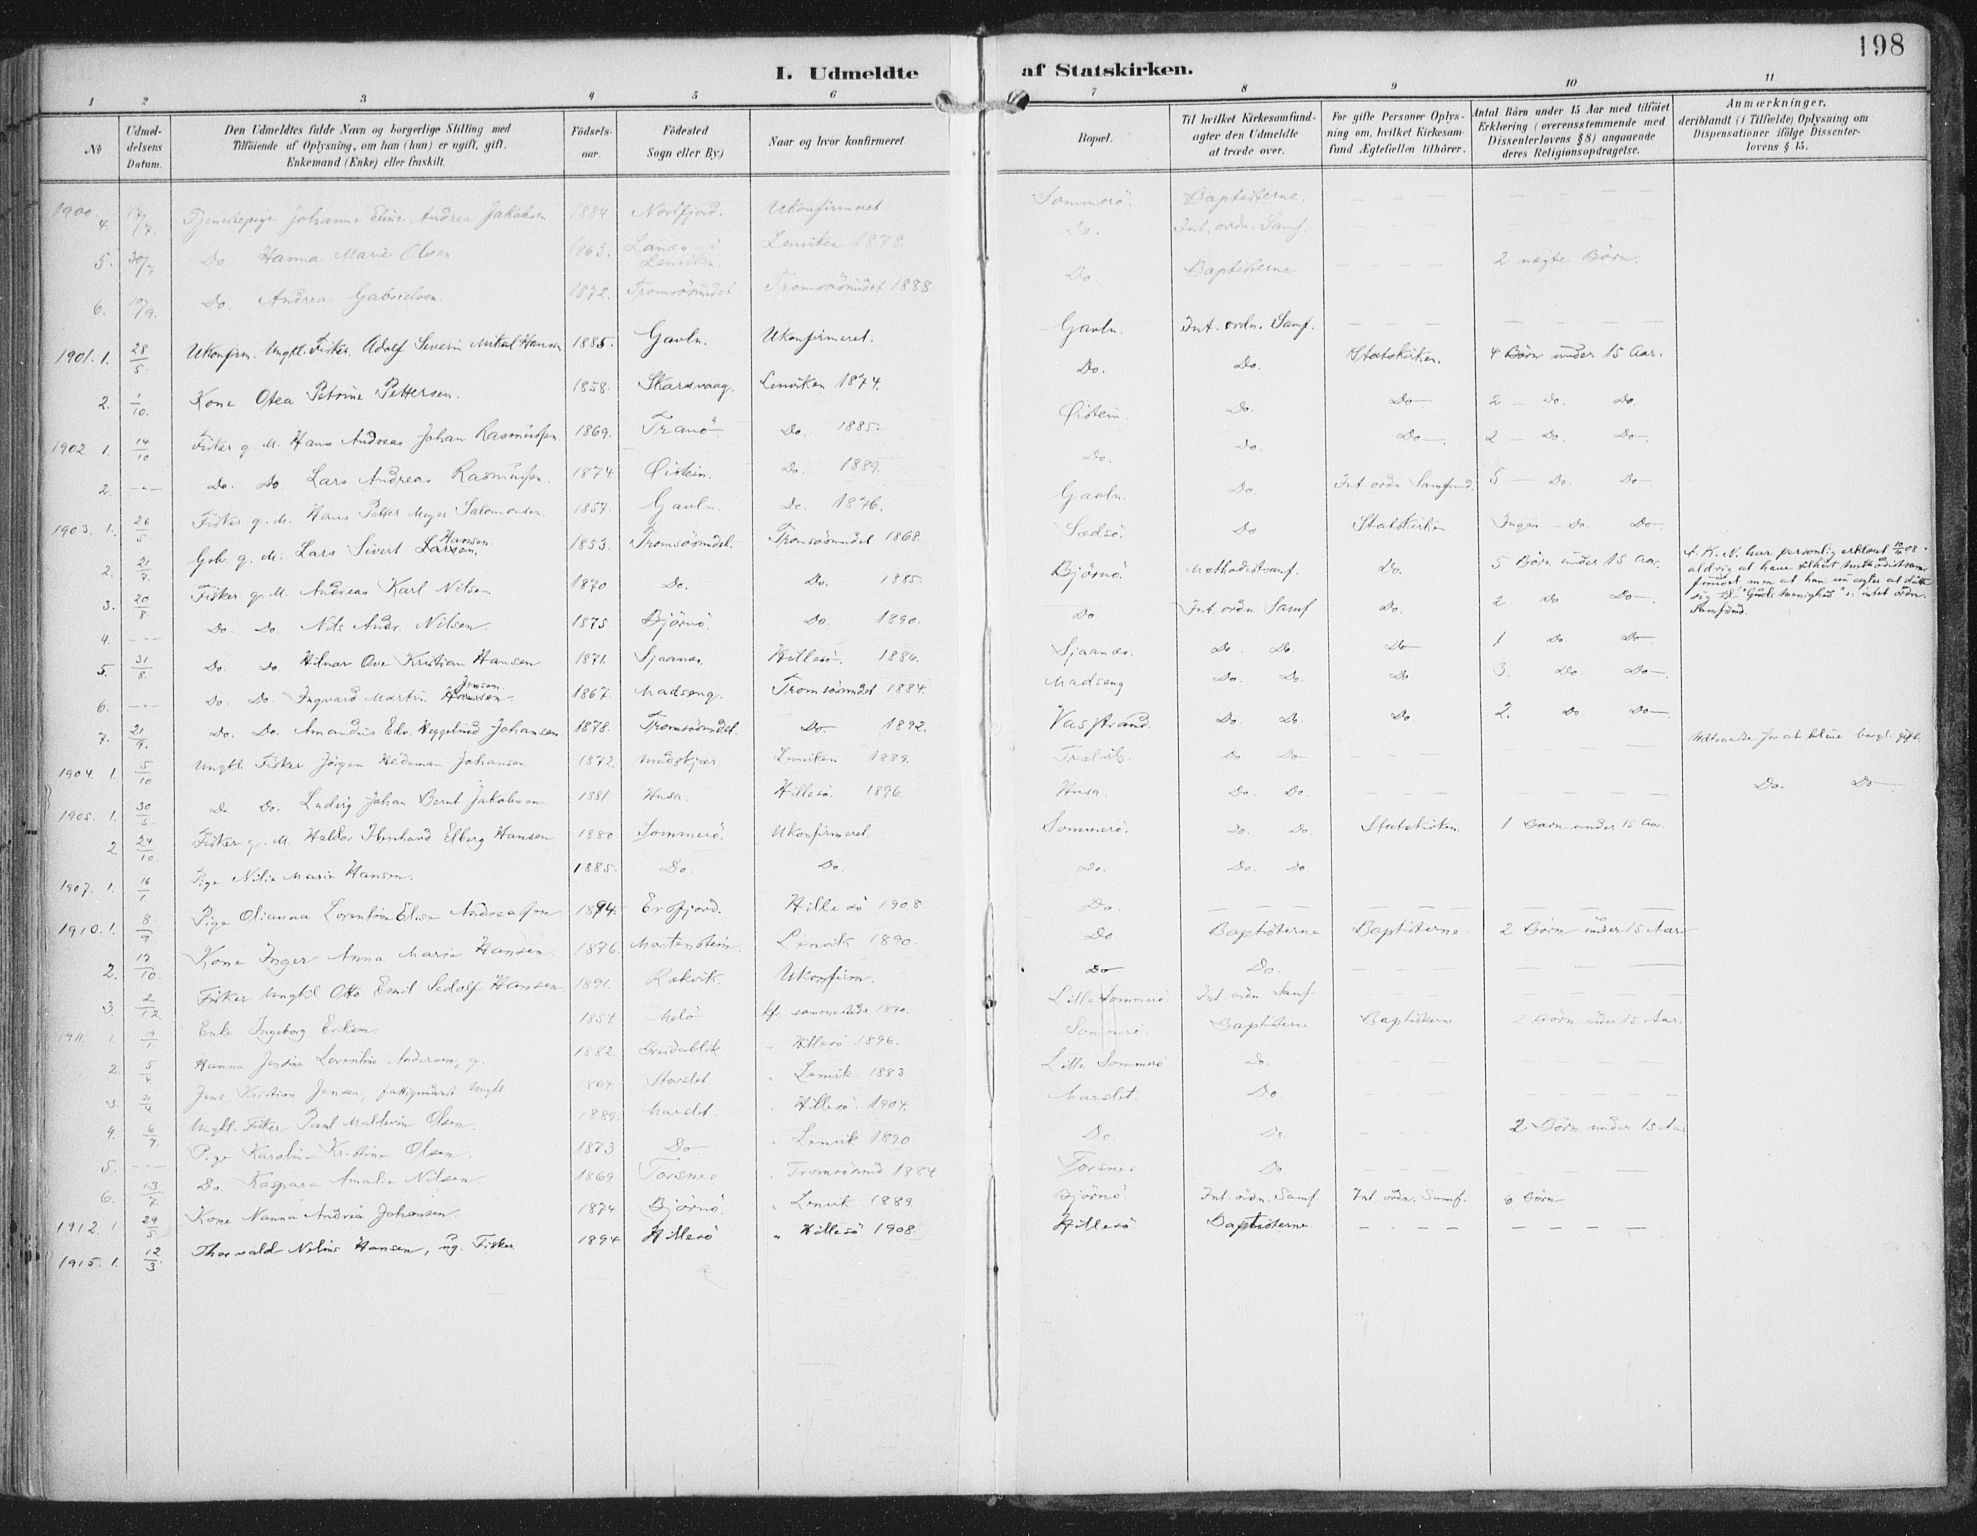 198
I. Udmeldte af Statskirken.
1 2 3 4 5 6 7 8 9 10 11
No
Udmel-
delsens
Datum.
Den Udmeldtes fulde Navn og borgerlige Stilling med
Tilföiende af Oplysning, om han (hun) er ugift, gift,
Enkemand (Enke) eller fraskilt.
Födsels-
aar.
Födested
Sogn eller By)
Naar og hvor konfirmeret
Bopæl.
Til hvilket Kirkesamfund-
agter den Udmeldte
at træde over.
For gifte Personer Oplys-
ning om, hvilket Kirkesam-
fund Ægtefællen tilhörer.
Antal Börn under 15 Aar med tilföiet
Erklæring (overensstemmende med
Dissenterlovens § 8) angaaende
deres Religionsopdragelse.
Anmærkninger,
deriblandt (i Tilfælde) Oplysning om
Dispensationer ifölge Dissenter-
lovens § 15.
1900. 4. 17/7. Tjenestepige Johanna Eline Andrea Jakobsen 1884 Nordfjord. Ukonfirmeret Sommerö. Baptisterne.
5. 30/7 Do. Hanna Marie Olsen 1863. Lanæs i Lenviken Lenviken 1878. Do. Int. ordn. Samf.
6. 10/9. Do. Andrea Gabrielsen. 1872. Tromsösundet Tromsösundet 1888. Do. Baptisterne 2 uægte Börn.
1901. 1. 28/5. Ukonfirm. Ungkl. Fisker Adolf Severin Mikal Hansen 1885. Gavln. Ukonfirmeret. Gavln. Int. ordn. Samf.
2. 1/10. Kone Otea Petrine Pettersen. 1858. Skarsvaag. Lenviken 1874. Do. Do. Statskirken. 4 Börn under 15 Aar.
1902 1. 14/10 Fisker g. M. Hans Andreas Johan Rasmussen. 1869. Tranö. Do. 1885. Öistein. Do. Do 2 - Do. Do.
2. --- Do. Do. Lars Andreas Rasmussen. 1874 Öistein. Do. 1889. Do. Do. Do. 2 - Do. Do.
1903. 1. 26/5. Fisker g. M. Hans Petter Meyer Salomonsen. 1857. Gavln. Do. 1876. Gavln. Do. Int. ordn. Samfund. 5 - Do. Do.
2. 21/7. Gbr. g. M. Lars Sivert Larsen. Hansen 1853. Tromsösundet. Tromsösundet 1868. Sædsö. Do Statskirken Ingen - Do. Do.
3. 20/8 Fisker g. M. Andreas Karl Nilsen. 1870 Do. Do. 1885. Björnö. Methodistsamf. Do. 5 Börn under 15 Aar. A. K. N. har personlig erklært 10/10 08.
aldrig at have tilhört Methodistsam-
fundet men at han nu agter at slutte
sig til "Guds Menighed" : intet ordn.
Samfund.
4. --- Do. Do. Nils Andr. Nilsen. 1875 Björnö. Do. 1890. Do Int. ordn Samf Do. 2 Do Do.
5. 31/8 Do. Do Hilmar Ove Kristian Hansen 1871. Sjaanæs. Hillesö. 1886. Sjaanæs. Do. Do. Do 1 Do Do
6. --- Do. Do. Ingvard Martin Hansen. Jensen 1867. Madseng. Tromsösundet 1884. Madseng Do. Do. Do 3. Do. Do.
7. 21/9. Do. Do. Amandus Edv. Heggelund Johansen. 1878. Tromsösundet. Do 1892. Vasstrand. Do. Do. Do. 2. Do Do.
1904. 1. 5/10 Ungkl. Fisker Jörgen Hedeman Johansen 1872. Medskjær Lenviken 1889. Trælvik. Do Do Udtraadte for at blive borgl. gift.
1905. 1. 30/5. Do Do. Ludvig Johan Bernt Jakobsen. 1881. Husa. Hillesö. 1896. Husa Do. Do. Do. Do
2 24/10. Fisker g. M. Haldor Elberg Hansen 1880 Sommerö. Ukonfirmeret. Sommerö. Do. Do. Statskirken. 1 Barn under 15 Aar.
1907. 1. 16/1 Pige Nilia Marie Hansen. 1885. Do. Do. Do. Do. Do
1910. 1. 8/9. Pige Olianna Lorentine Elise Andreassen 1894. Ersfjord. Hillesö 1908 Do.
2. 17/10. Kone Inger Anna Marie Hansen. 1876 Mortenstein. Lenvik 1890. Do. Baptisterne Baptisterne 2 Börn under 15 Aar.
3. 2/12 Fisker Ungkl Otto Emil Sedolf Hansen 1891. Rækvik. Ukonfirm. Do Do
1911. 1 9/1. Enke Ingeborg Eriksen. 1854 Melö kf. sammesteds 1870. Lille Sommerö Int ordn Samf
2. 5/4 Hanna Jensine Lorentine Andersen, g. 1882. " Hillesö 1896. Sommerö. Baptisterne Baptisterne 2 Börn under 15 Aar.
3. 21/4 Jens Kristian Jensen, Ungkl 1864 Storslet " Lenvik 1883 Lille Sommerö Do.
4. 6/7. Ungkl. Fisker Paul Olsen. 1889. Marslet. " Hillesö 1904. Marslet. Do
5. --- Pige Karoline Kristine Olsen. 1873 Do " Lenvik 1890 Do. Do. 2 Börn under 15 Aar
6. 13/7. Do. Kaspara Amalie Nilsen 1869 Torsnes " Tromsösund 1884 Torsnes Do.
1912. 1. 29/5 Kone Nanna Andrea Johansen. 1874 Björnö. " Lenvik 1889 Björnö. Int. ordn. Samf. Int ordn. Samf. 6 Börn
1915. 1. 12/3. Thorvald Nilius Hansen, ug. Fisker 1894 Hillesö " Hillesö 1908. Hillesö Baptisterne